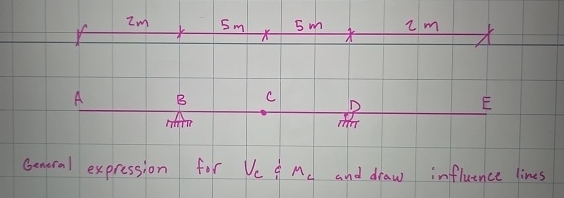 2m 5m 5m 2m
A B C D E
General expression for Vc & Mc and draw influence lines